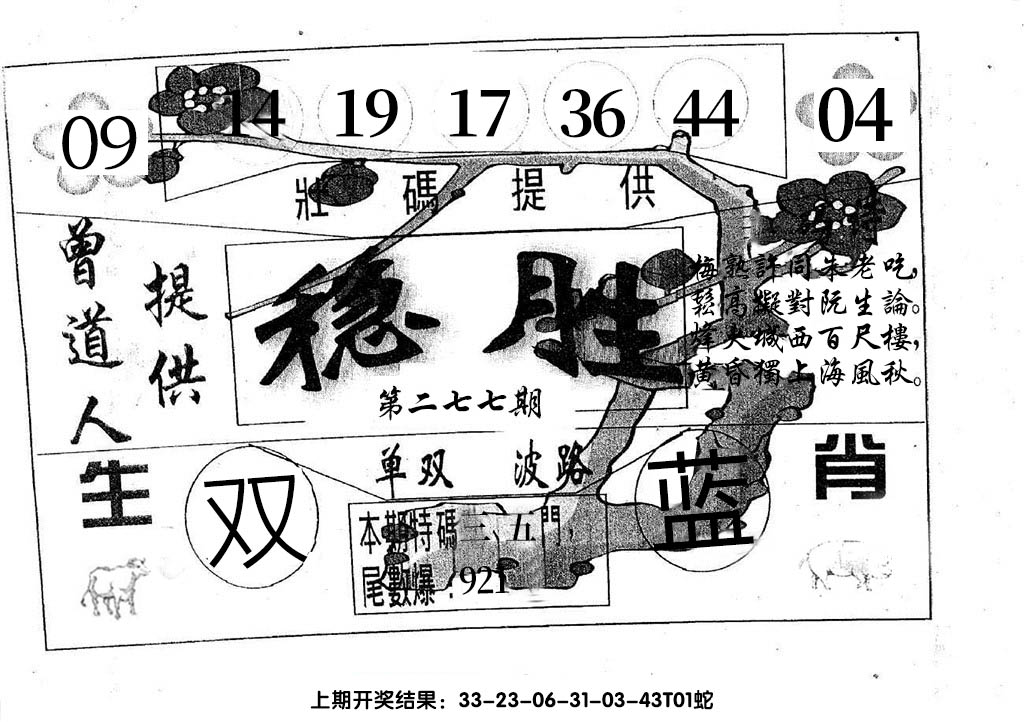 09 14 19 17 36 44 04
壯碼提供
曾道人
提供
稳胜
第二七七期
梅熟許同朱老吃,
鬆高擬對阮生論。
烽火城西百尺樓,
黃昏獨上海風秋。
单双 波路
生
双
蓝
肖
本期特碼三、五門,
尾數爆:921
上期开奖结果：33-23-06-31-03-43T01蛇